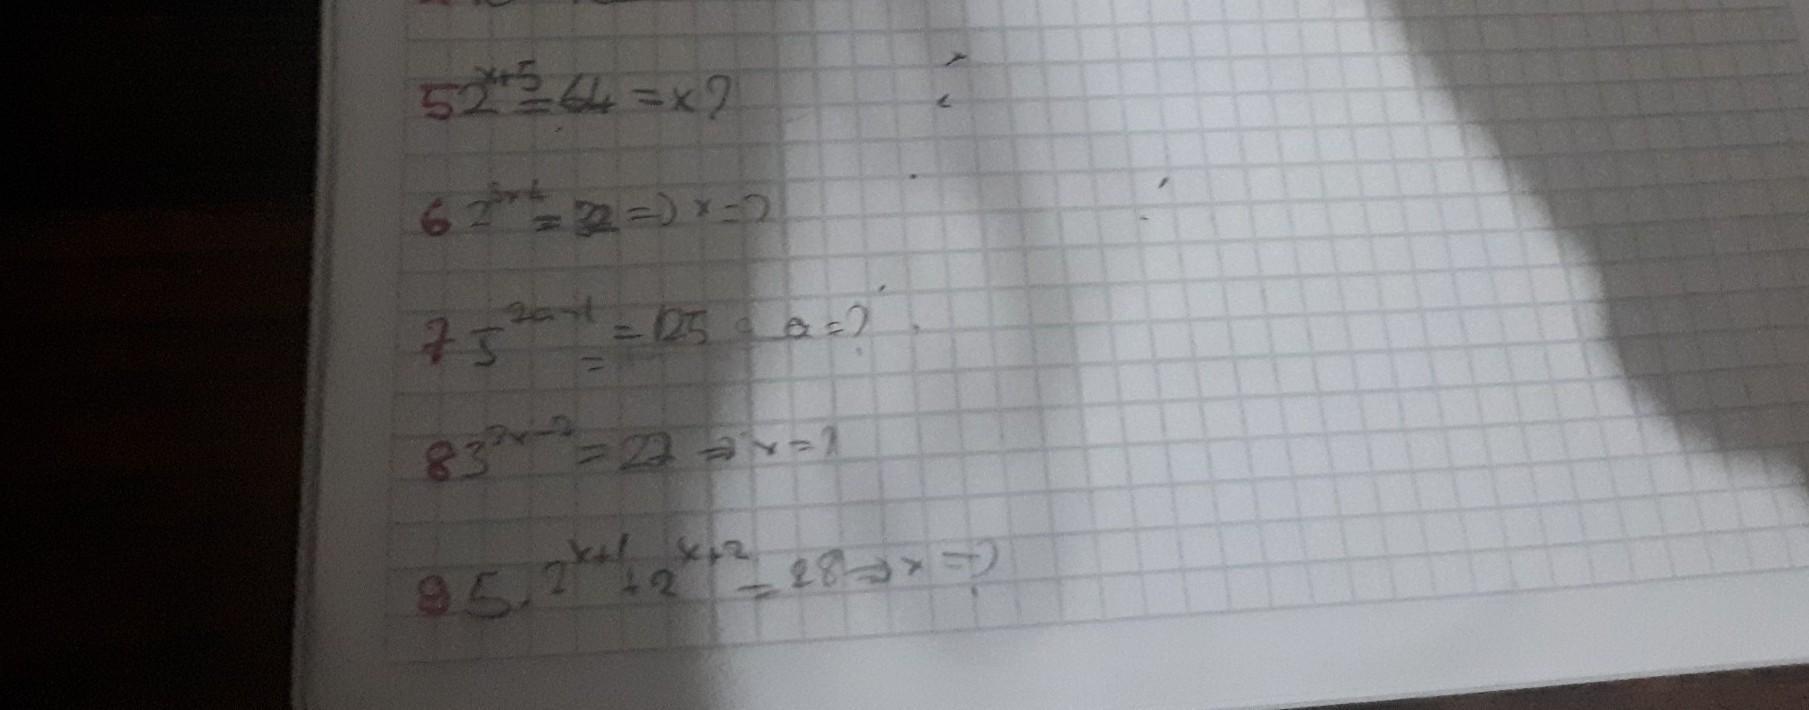 5 2^{x+5} = 64 = x?
6 2^{3x+2} = 32 => x = ?
7 5^{2a+1} = 125 a = ?
8 3^{2x-2} = 27 => x = ?
9 5 . 2^{x+1} + 2^{x+2} = 28 => x = ?